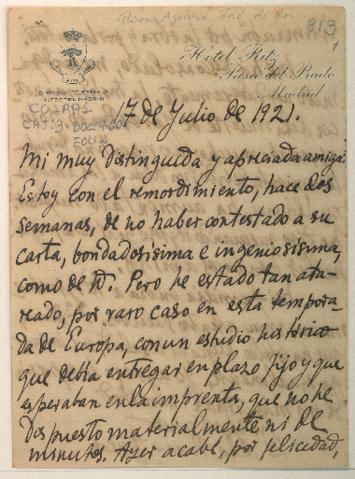 Riva-Agüero José de la
813
1
Hotel Ritz
Plaza del Prado
Madrid
RITZOTEL MADRID
17 de Julio de 1921.
Mi muy distinguida y apreciada amiga:
Estoy con el remordimiento, hace dos
semanas, de no haber contestado a su
carta, bondadosísima e ingeniosísima,
como de V. Pero he estado tan ata-
reado, por raro caso en esta tempora-
da de Europa, con un estudio histórico
que debía entregar en plazo fijo y que
esperaban en la imprenta, que no he
dispuesto materialmente ni de
minutos. Ayer acabé, por felicidad,